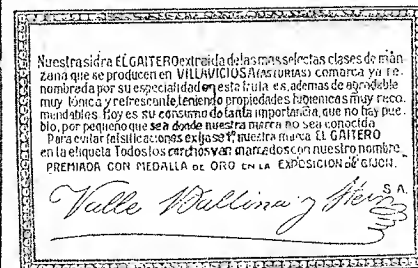 Nuestra sidra EL GAITERO extraida de las mas selectas clases de man
zana que se producen en VILLAVICIOSA (ASTURIAS) comarca ya re-
nombrada por su especialidad en esta fruta es, ademas de agradable
muy tónica y refrescante, teniendo propiedades higienicas muy reco
mendables Hoy es su consumo de tanta importancia, que no hay pue-
blo, por pequeño que sea donde nuestra marca no sea conocida
Para evitar falsificaciones exijase 1º, nuestra marca EL GAITERO
en la etiqueta Todos los corchos van marcados con nuestro nombre.
PREMIADA CON MEDALLA DE ORO EN LA EXPOSICION DE GIJON.
Valle Ballina y Fern
S A.